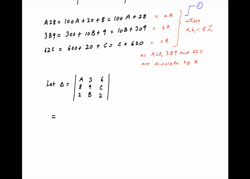 A28 = 100A + 20 + 8 = 100A + 28 = ak
3B9 = 300 + 10B + 9 = 10B + 309 = bk
62C = 600 + 20 + C = C + 620 = ck
①
where
a,b,c ∈ Z
as A28, 3B9 and 62C
are divisible by k
Let Δ = | A 3 6 |
| 8 9 C |
| 2 B 2 |
=